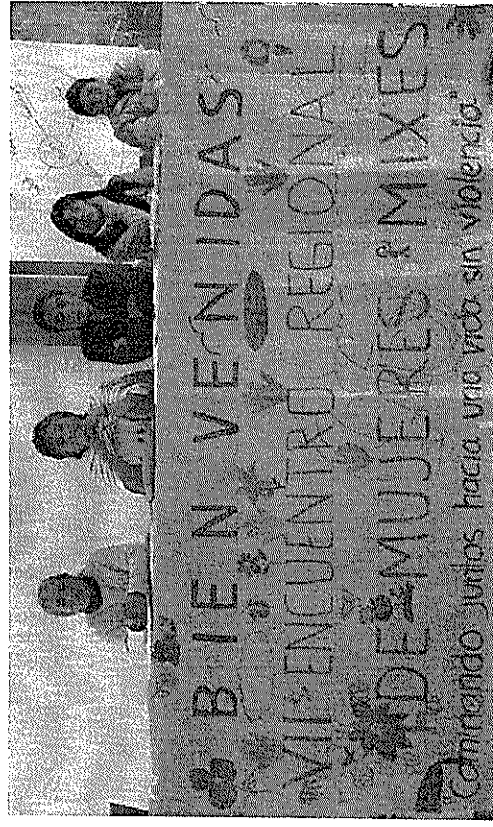 BIEN VENIDAS
VII ENCUENTRO REGIONAL
DE MUJERES MIXES
"Caminando juntos hacia una vida sin violencia"